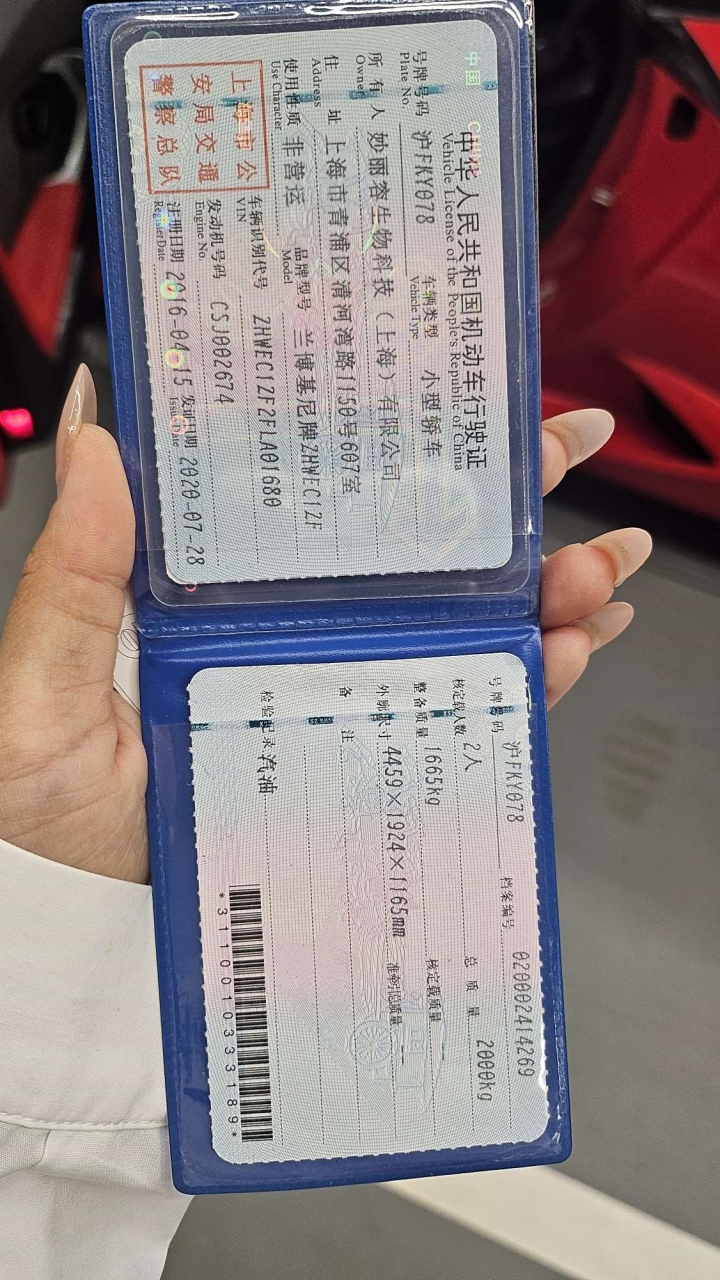 中国 CHINA
中华人民共和国机动车行驶证
Vehicle License of the People's Republic of China
号牌号码 沪FKY078 车辆类型 小型轿车
Plate No. Vehicle Type
所有人 妙丽容生物科技（上海）有限公司
Owner
住址 上海市青浦区清河湾路1150号607室
Address
使用性质 非营运 品牌型号 兰博基尼牌ZHWEC1ZF
Use Character Model
上海市公
安局交通
警察总队
车辆识别代号 ZHWEC1ZF2FLA01680
VIN
发动机号码 CSJ002674
Engine No.
注册日期 2016-04-15 发证日期 2020-07-28
Register Date Issue Date
号牌号码 沪FKY078 档案编号 020002414269
核定载人数 2人 总质量 2000kg
整备质量 1665kg 核定载质量 —
外廓尺寸 4459×1924×1165mm 准牵引总质量 —
备注
检验记录 汽油
*3110010333189*